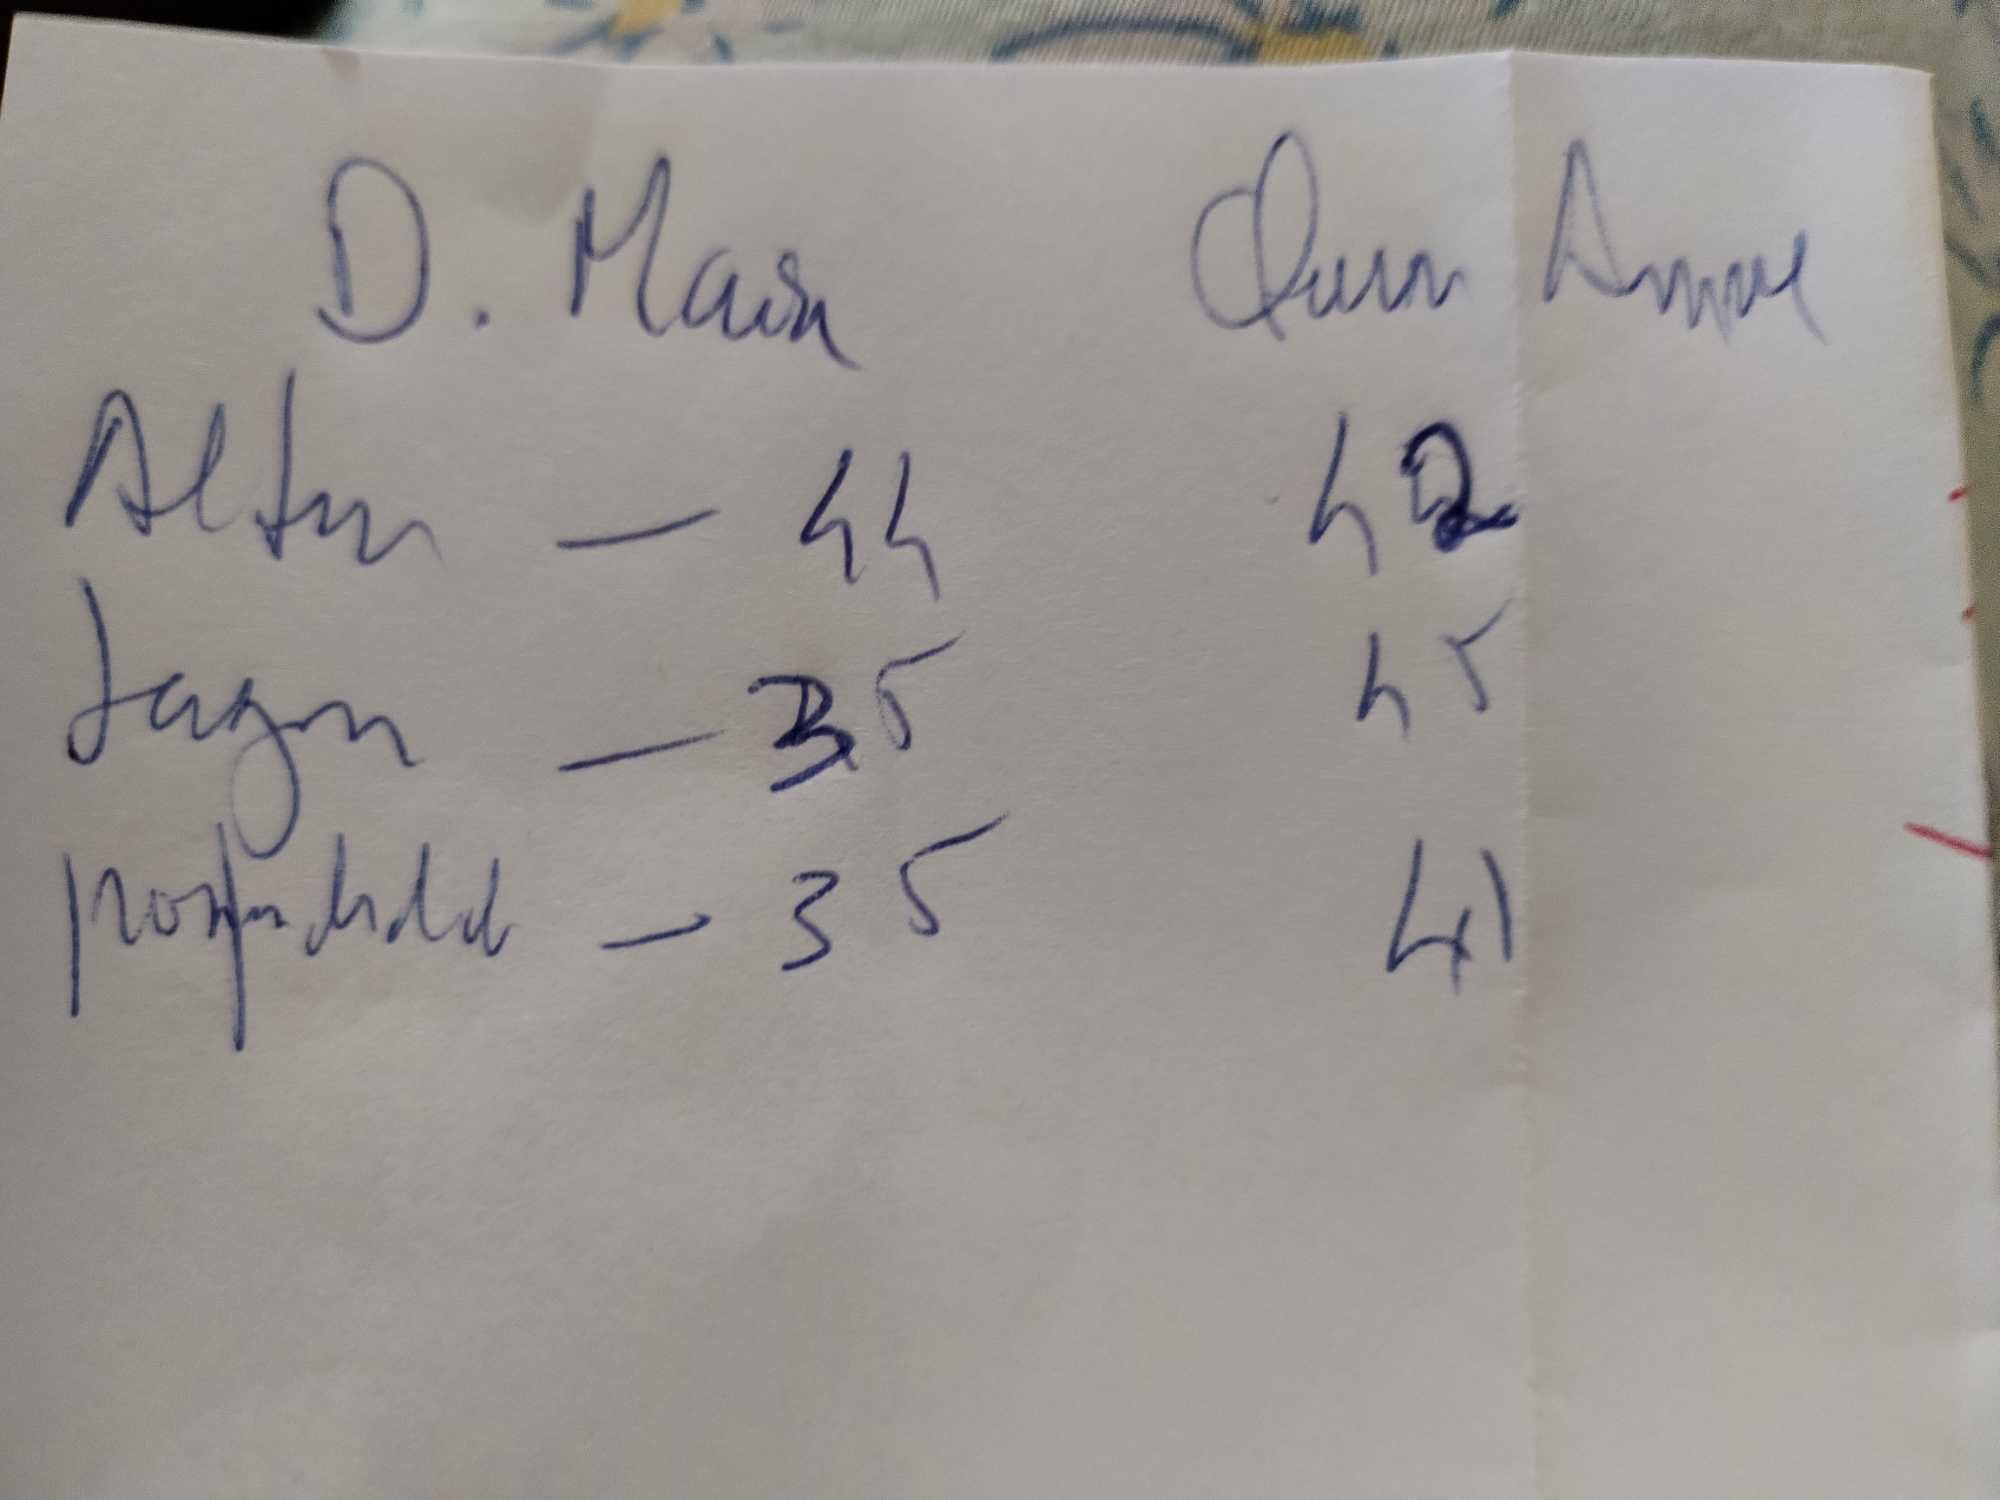 D. Maria Quem Amou
Altura — 44 42
Largura — 35 45
Profundidade — 35 41